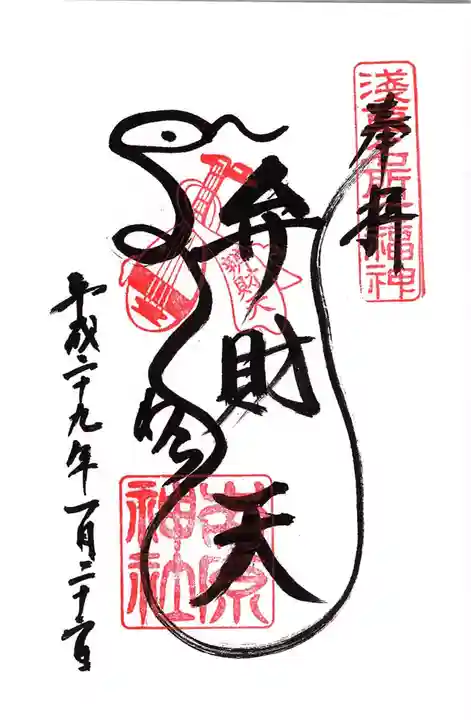 淺草名所七福神
奉拝
弁財天
辨財天
吉原
神社
平成二十九年一月二十日